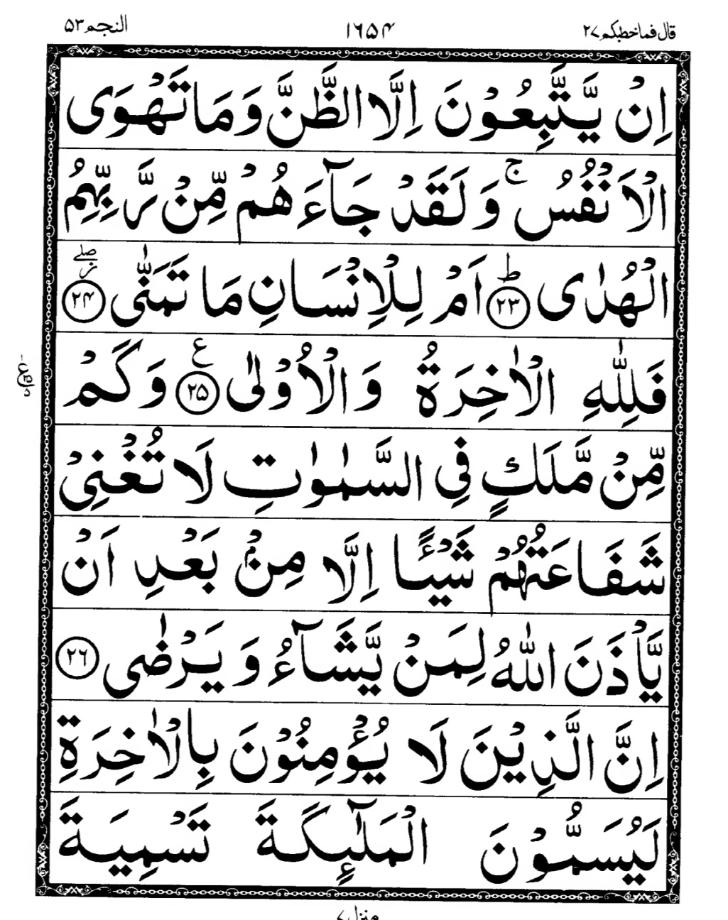 قال فما خطبكم ٢٧ ١٦٥٤ النجم ٥٣
اِنۡ يَّتَّبِعُوۡنَ اِلَّا الظَّنَّ وَمَا تَهۡوَى
الۡاَنۡفُسُ ۚ وَلَقَدۡ جَآءَهُمۡ مِّنۡ رَّبِّهِمُ
الۡهُدٰى ؕ ﴿۲۳﴾ اَمۡ لِلۡاِنۡسَانِ مَا تَمَنّٰى ۖ ﴿۲۴﴾
فَلِلّٰهِ الۡاٰخِرَةُ وَالۡاُوۡلٰى ﴿۲۵﴾ ع وَكَمۡ
مِّنۡ مَّلَكٍ فِى السَّمٰوٰتِ لَا تُغۡنِىۡ
شَفَاعَتُهُمۡ شَيۡــًٔا اِلَّا مِنۡۢ بَعۡدِ اَنۡ
يَّاۡذَنَ اللّٰهُ لِمَنۡ يَّشَآءُ وَيَرۡضٰى ﴿۲۶﴾
اِنَّ الَّذِيۡنَ لَا يُؤۡمِنُوۡنَ بِالۡاٰخِرَةِ
لَيُسَمُّوۡنَ الۡمَلٰٓٮِٕكَةَ تَسۡمِيَةَ
منزل ٧